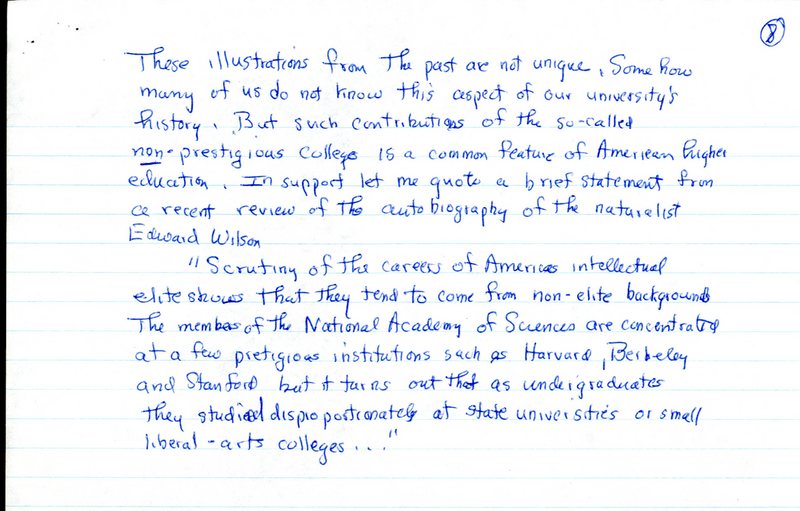 8
These illustrations from the past are not unique. Some how
many of us do not know this aspect of our university's
history. But such contributions of the so-called
non-prestigious college is a common feature of American higher
education. In support let me quote a brief statement from
a recent review of the autobiography of the naturalist
Edward Wilson
"Scrutiny of the careers of Americas intellectual
elite shows that they tend to come from non-elite backgrounds
The members of the National Academy of Sciences are concentrated
at a few pretigious institutions such as Harvard, Berkeley
and Stanford but it turns out that as undergraduates
they studied disproportionately at state universities or small
liberal-arts colleges..."